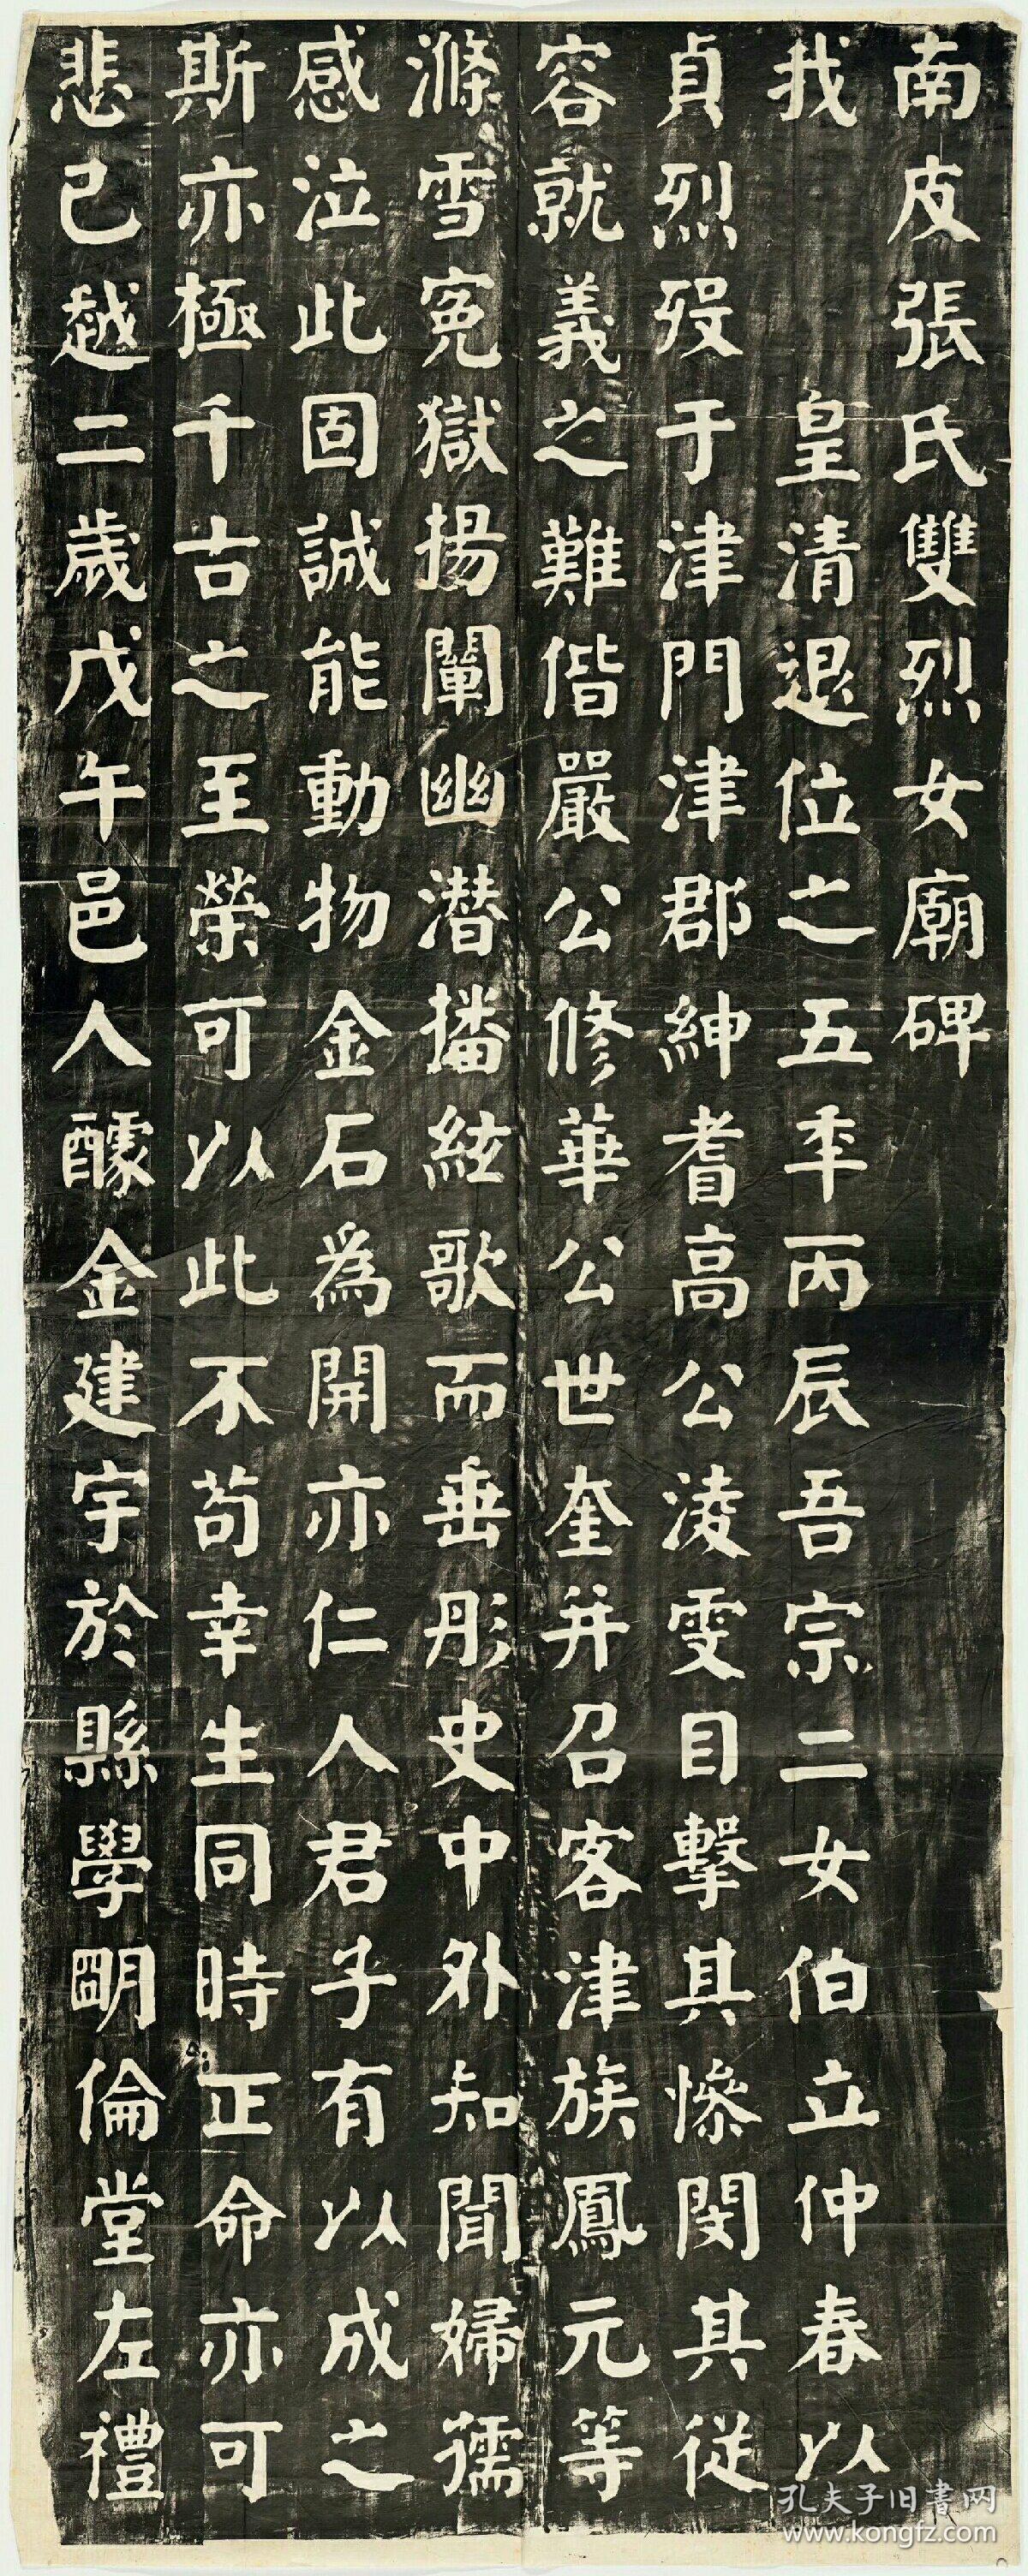 南皮張氏雙烈女廟碑
我皇清退位之五年丙辰吾宗二女伯立仲春以
貞烈歿于津門津郡紳耆高公淩雯目擊其慘閔其從
容就義之難偕嚴公修華公世奎并召客津族鳳元等
滌雪冤獄揚闡幽潛播絃歌而垂彤史中外知聞婦孺
感泣此固誠能動物金石為開亦仁人君子有以成之
斯亦極千古之至榮可以此不苟幸生同時正命亦可
悲已越二歲戊午邑人醵金建宇於縣學明倫堂左禮
孔夫子旧書网
www.kongfz.com